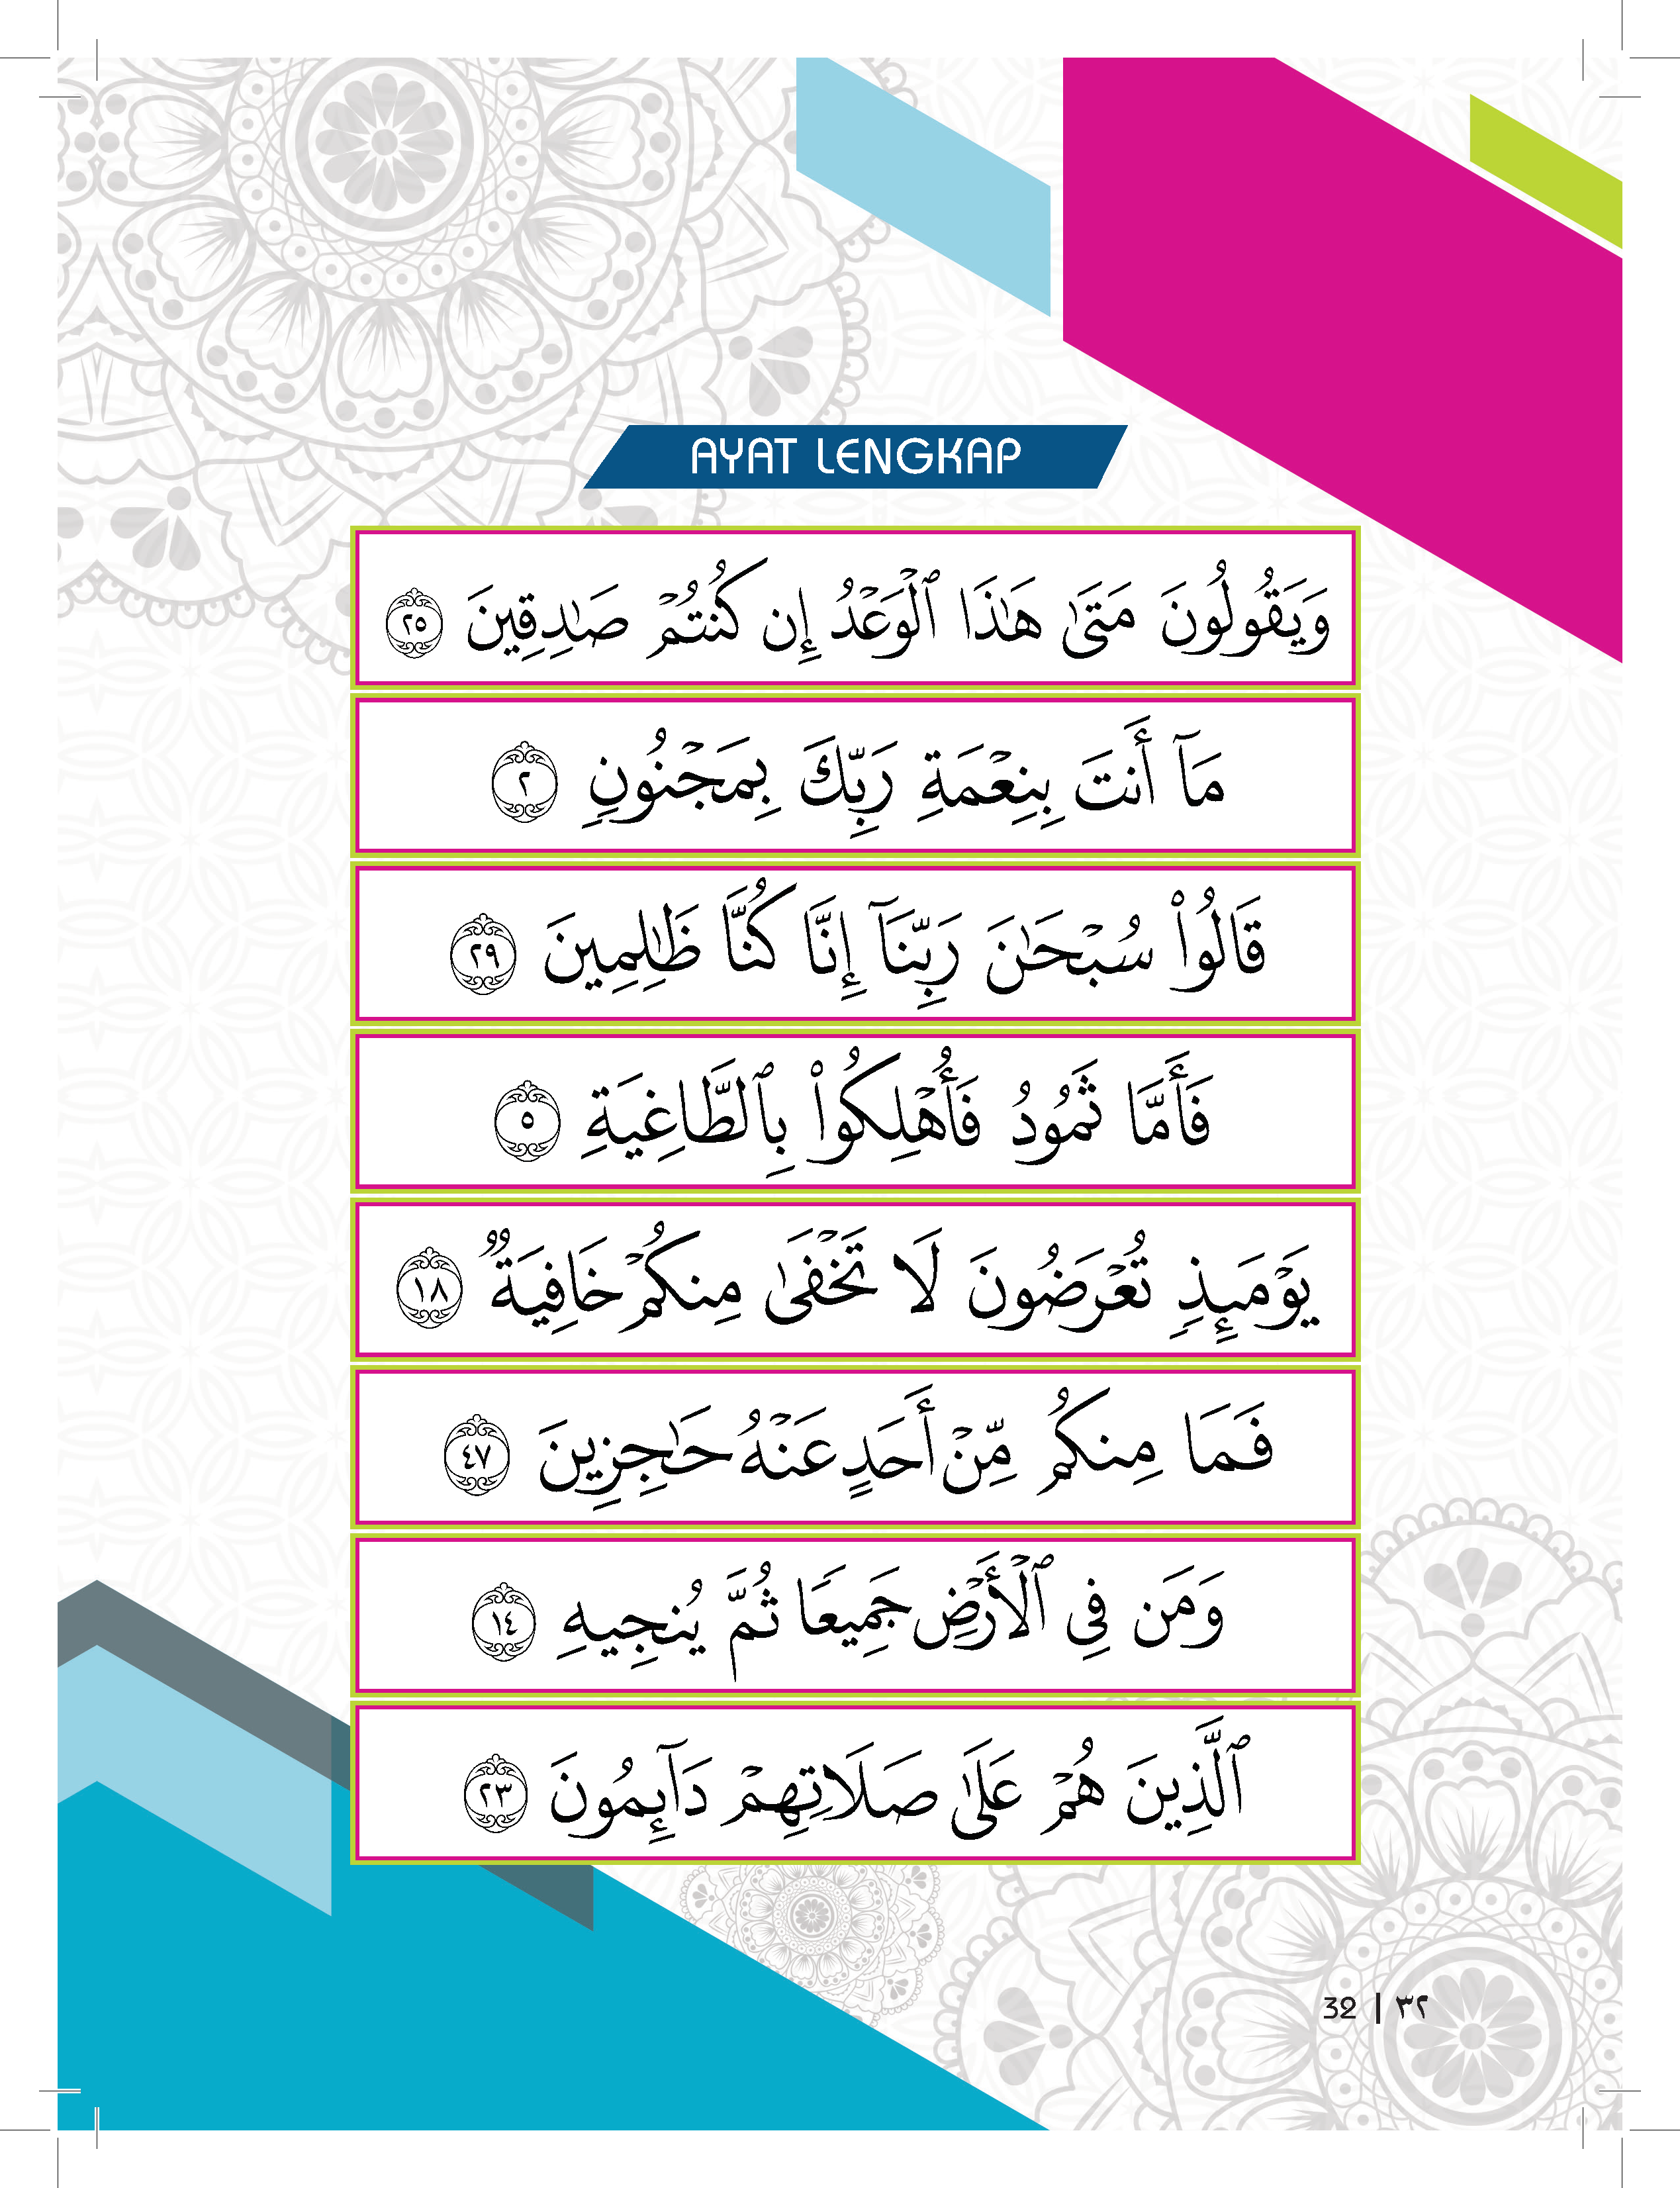 AYAT LENGKAP
وَيَقُولُونَ مَتَىٰ هَٰذَا ٱلْوَعْدُ إِن كُنتُمْ صَٰدِقِينَ ٢٥
مَآ أَنتَ بِنِعْمَةِ رَبِّكَ بِمَجْنُونٍ ٢
قَالُوا۟ سُبْحَٰنَ رَبِّنَآ إِنَّا كُنَّا ظَٰلِمِينَ ٢٩
فَأَمَّا ثَمُودُ فَأُهْلِكُوا۟ بِٱلطَّاغِيَةِ ٥
يَوْمَئِذٍ تُعْرَضُونَ لَا تَخْفَىٰ مِنكُمْ خَافِيَةٌ ١٨
فَمَا مِنكُم مِّنْ أَحَدٍ عَنْهُ حَٰجِزِينَ ٤٧
وَمَن فِى ٱلْأَرْضِ جَمِيعًا ثُمَّ يُنجِيهِ ١٤
ٱلَّذِينَ هُمْ عَلَىٰ صَلَاتِهِمْ دَآئِمُونَ ٢٣
32 | ٣٢